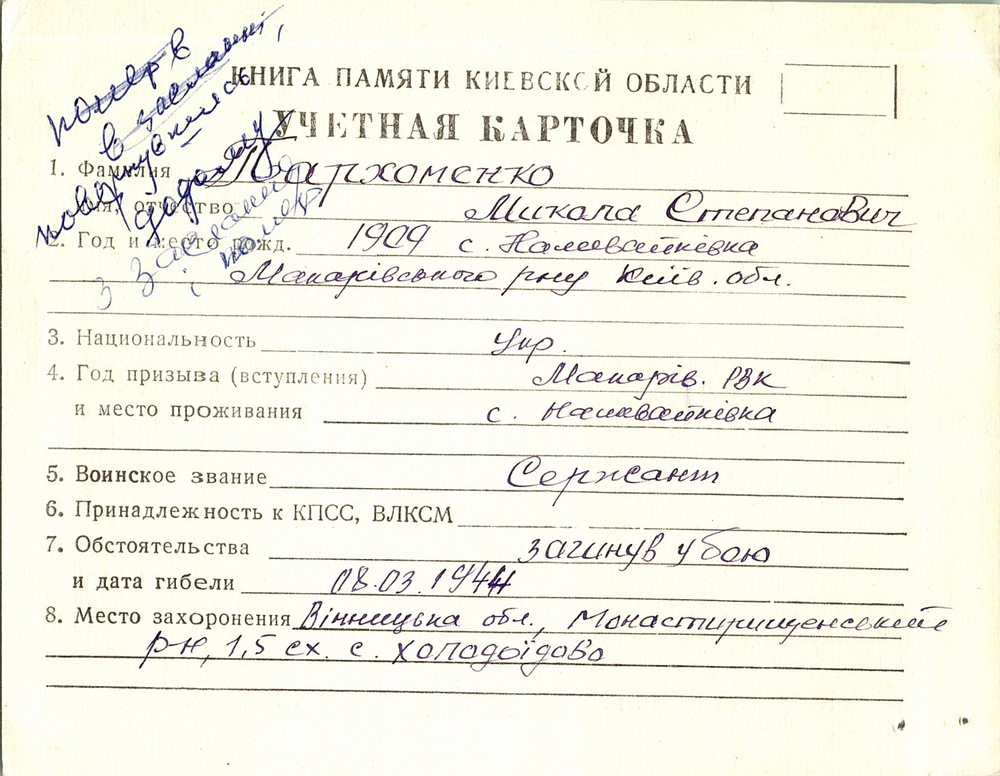 помер в
в засланні,
повернувшись
додому
з заслання
і помер
КНИГА ПАМЯТИ КИЕВСКОЙ ОБЛАСТИ
УЧЕТНАЯ КАРТОЧКА
1. Фамилия Пархоменко
имя, отчество Микола Степанович
2. Год и место рожд. 1909 с. Наливайківка
Макарівського р-ну Київ. обл.
3. Национальность Укр.
4. Год призыва (вступления) Макарів. РВК
и место проживания с. Наливайківка
5. Воинское звание Сержант
6. Принадлежность к КПСС, ВЛКСМ
7. Обстоятельства загинув у бою
и дата гибели 08.03.1944
8. Место захоронения Вінницька обл., Монастирищенський
р-н, 1,5 сх. с. Холодоїдово